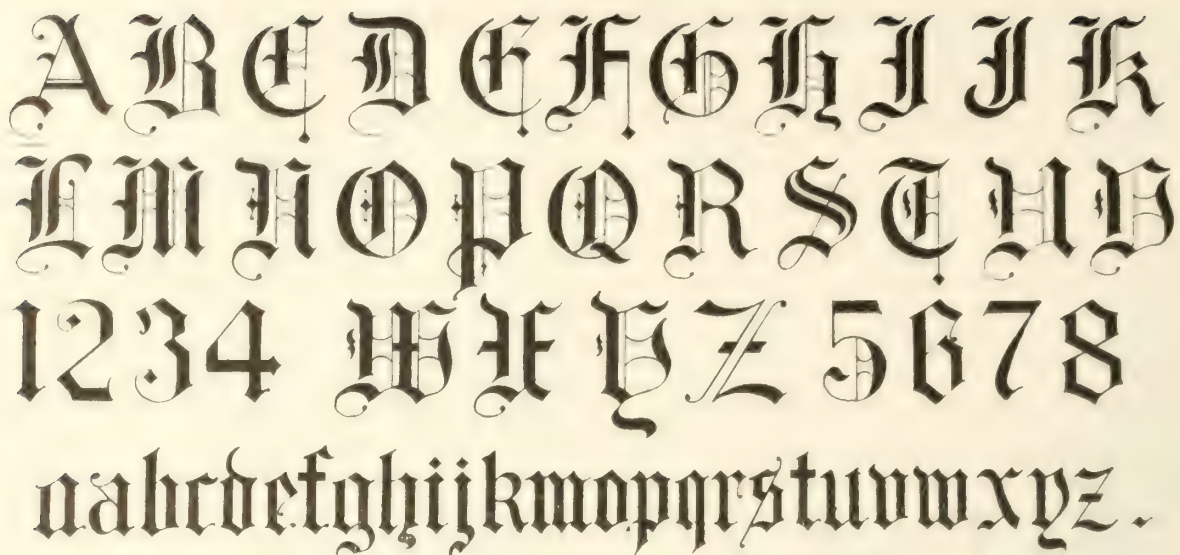 A B C D E F G H I J K
L M N O P Q R S T U V
1 2 3 4 W X Y Z 5 6 7 8
a a b c d e f g h i j k m o p q r s t u v w x y z .